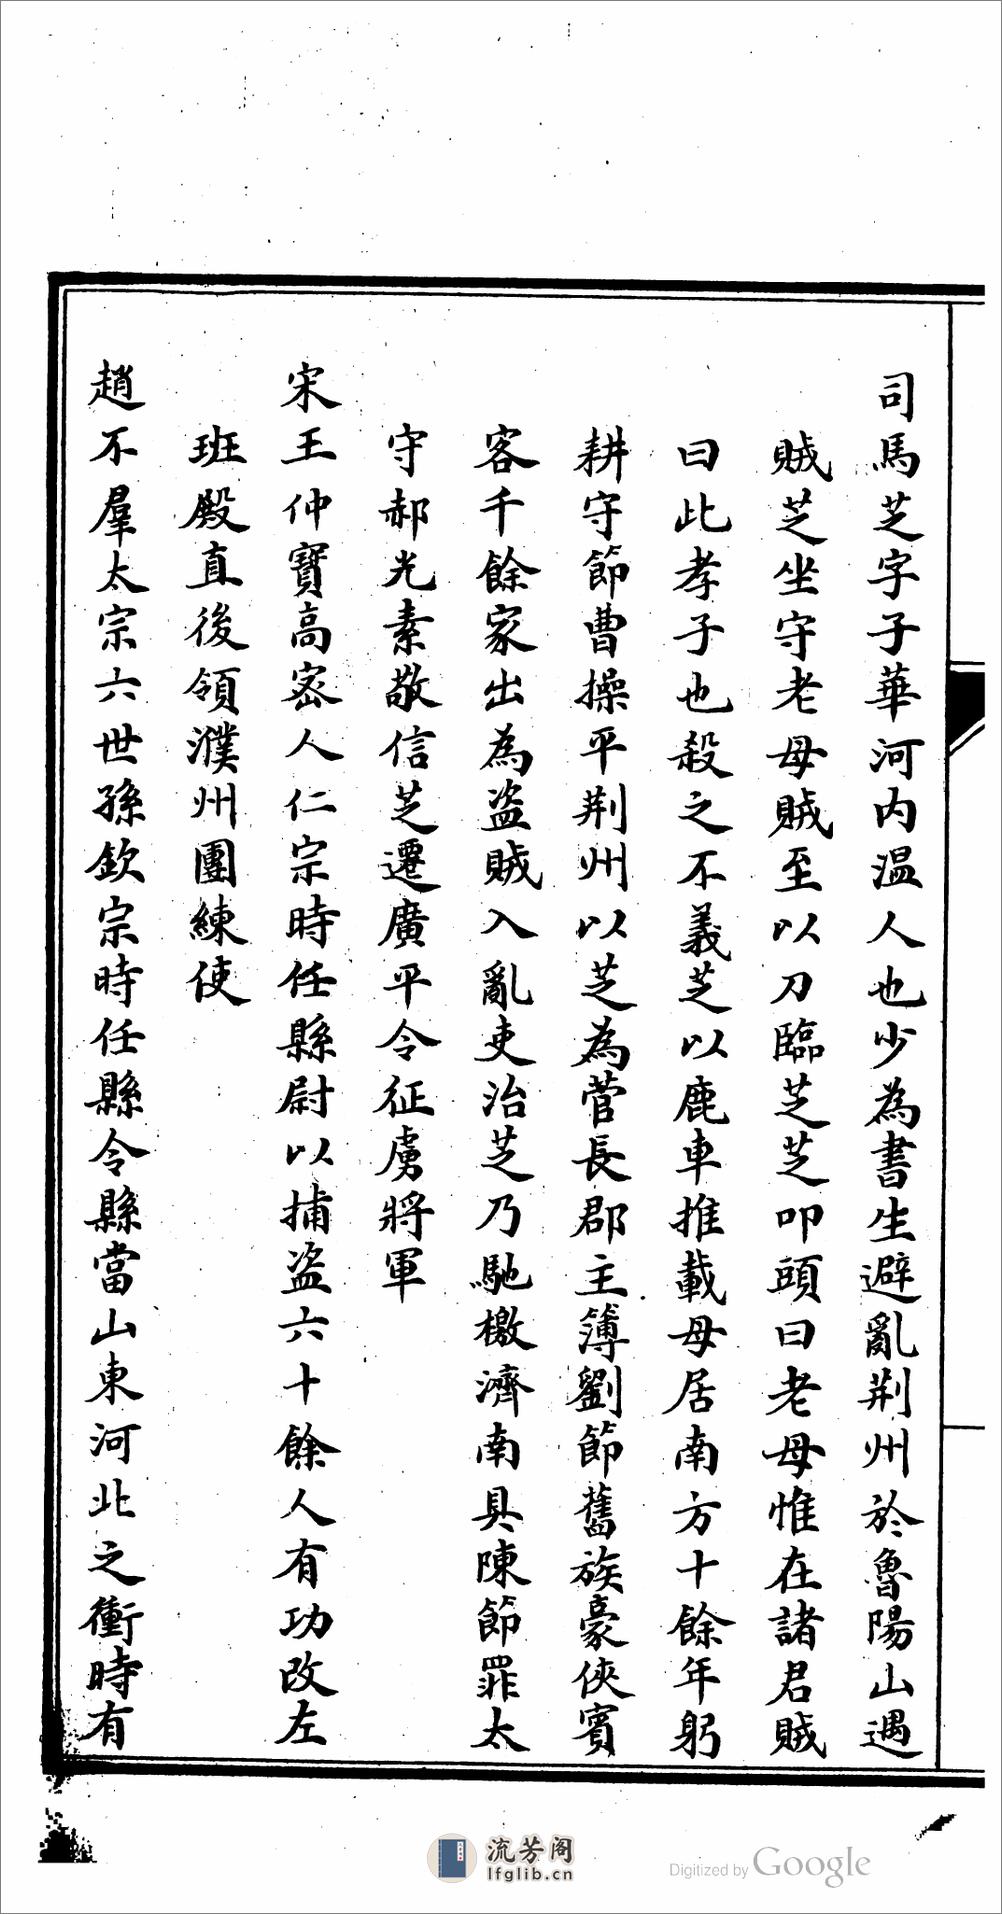 司馬芝字子華河内温人也少為書生避亂荆州於魯陽山遇
賊芝坐守老母賊至以刀臨芝芝叩頭曰老母惟在諸君賊
曰此孝子也殺之不義芝以鹿車推載母居南方十餘年躬
耕守節曹操平荆州以芝為菅長郡主簿劉節舊族豪俠賓
客千餘家出為盗賊入亂吏治芝乃馳檄濟南具陳節罪太
守郝光素敬信芝遷廣平令征虜將軍
宋王仲寶高密人仁宗時任縣尉以捕盗六十餘人有功改左
班殿直後領濮州團練使
趙不羣太宗六世孫欽宗時任縣令縣當山東河北之衝時有
流芳阁
lfglib.cn
Digitized by Google